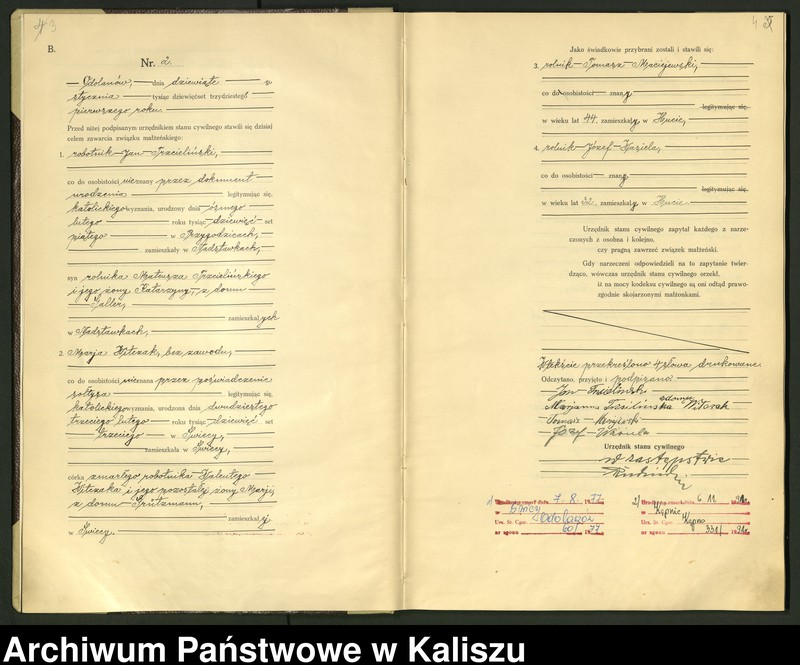 B.
Nr. 2.
Odolanów, dnia dziewiąte
stycznia tysiąc dziewięćset trzydziestego
pierwszego roku.
Przed niżej podpisanym urzędnikiem stanu cywilnego stawili się dzisiaj
celem zawarcia związku małżeńskiego:
1. robotnik Jan Trzcieliński,
co do osobistości nieznany przez dokument
urodzenia legitymując się,
katolickiego wyznania, urodzony dnia ósmego
lutego roku tysiąc dziewięć set
piątego w Przygodzicach,
zamieszkały w Nadstawkach,
syn rolnika Mateusza Trzcielińskiego
i jego żony Katarzyny, z domu
Saller,
zamieszkałych
w Nadstawkach,
2. Marja Witczak, bez zawodu,
co do osobistości nieznana przez poświadczenie
sołtysa legitymując się,
katolickiego wyznania, urodzona dnia dwudziestego
trzeciego lutego roku tysiąc dziewięć set
trzeciego w Świecy,
zamieszkała w Świecy,
córka zmarłego robotnika Walentego
Witczaka i jego pozostałej żony Marji,
z domu
zamieszkałej
w Świecy.
Jako świadkowie przybrani zostali i stawili się:
3. rolnik Tomasz Maciejewski,
co do osobistości znany
legitymując się,
w wieku lat 44, zamieszkały w Hucie,
4. rolnik Józef
co do osobistości znany
legitymując się,
w wieku lat 32, zamieszkały w Hucie.
Urzędnik stanu cywilnego zapytał każdego z narze-
czonych z osobna i kolejno,
czy pragną zawrzeć związek małżeński.
Gdy narzeczeni odpowiedzieli na to zapytanie twier-
dząco, wówczas urzędnik stanu cywilnego orzekł,
iż na mocy kodeksu cywilnego są oni odtąd prawo-
zgodnie skojarzonymi małżonkami.
W tekście przekreślono 4 słowa drukowane.
Odczytano, przyjęto i podpisano:
Jan Trzcieliński
Marjanna Trzcielińska z domu Witczak
Tomasz
Józef
Urzędnik stanu cywilnego
w zastępstwie
1) dnia 7. 8. 1977
w Świecy
Urz. St. Cyw. Odolanów
nr zgonu 60/ 1977
2) 6 11
w Kępnie
Urz. St. Cyw. Kępno
nr zgonu 331/
Archiwum Państwowe w Kaliszu